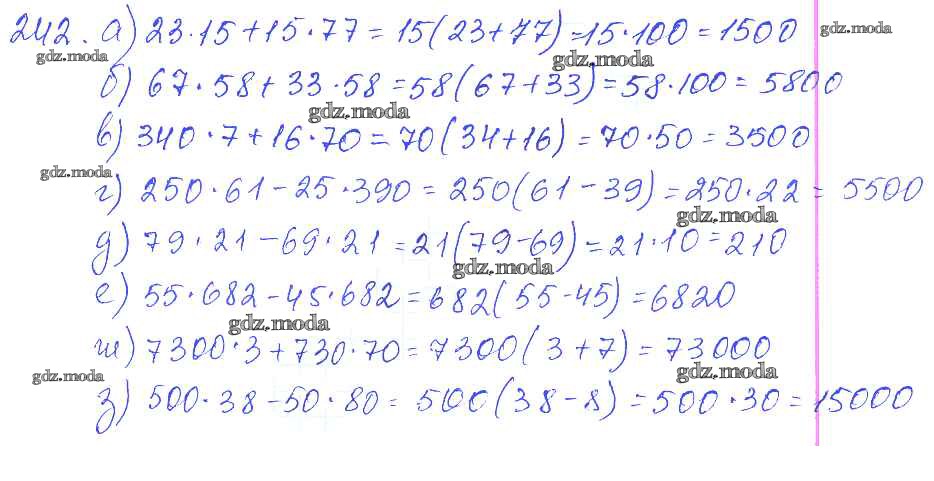 242. а) 23·15+15·77=15(23+77)=15·100=1500 gdz.moda
gdz.moda
gdz.moda
б) 67·58+33·58=58(67+33)=58·100=5800
gdz.moda
в) 340·7+16·70=70(34+16)=70·50=3500
gdz.moda
г) 250·61-25·390=250(61-39)=250·22=5500
gdz.moda
д) 79·21-69·21=21(79-69)=21·10=210
gdz.moda
е) 55·682-45·682=682(55-45)=6820
gdz.moda
ж) 7300·3+730·70=7300(3+7)=73000
gdz.moda
gdz.moda
з) 500·38-50·80=500(38-8)=500·30=15000